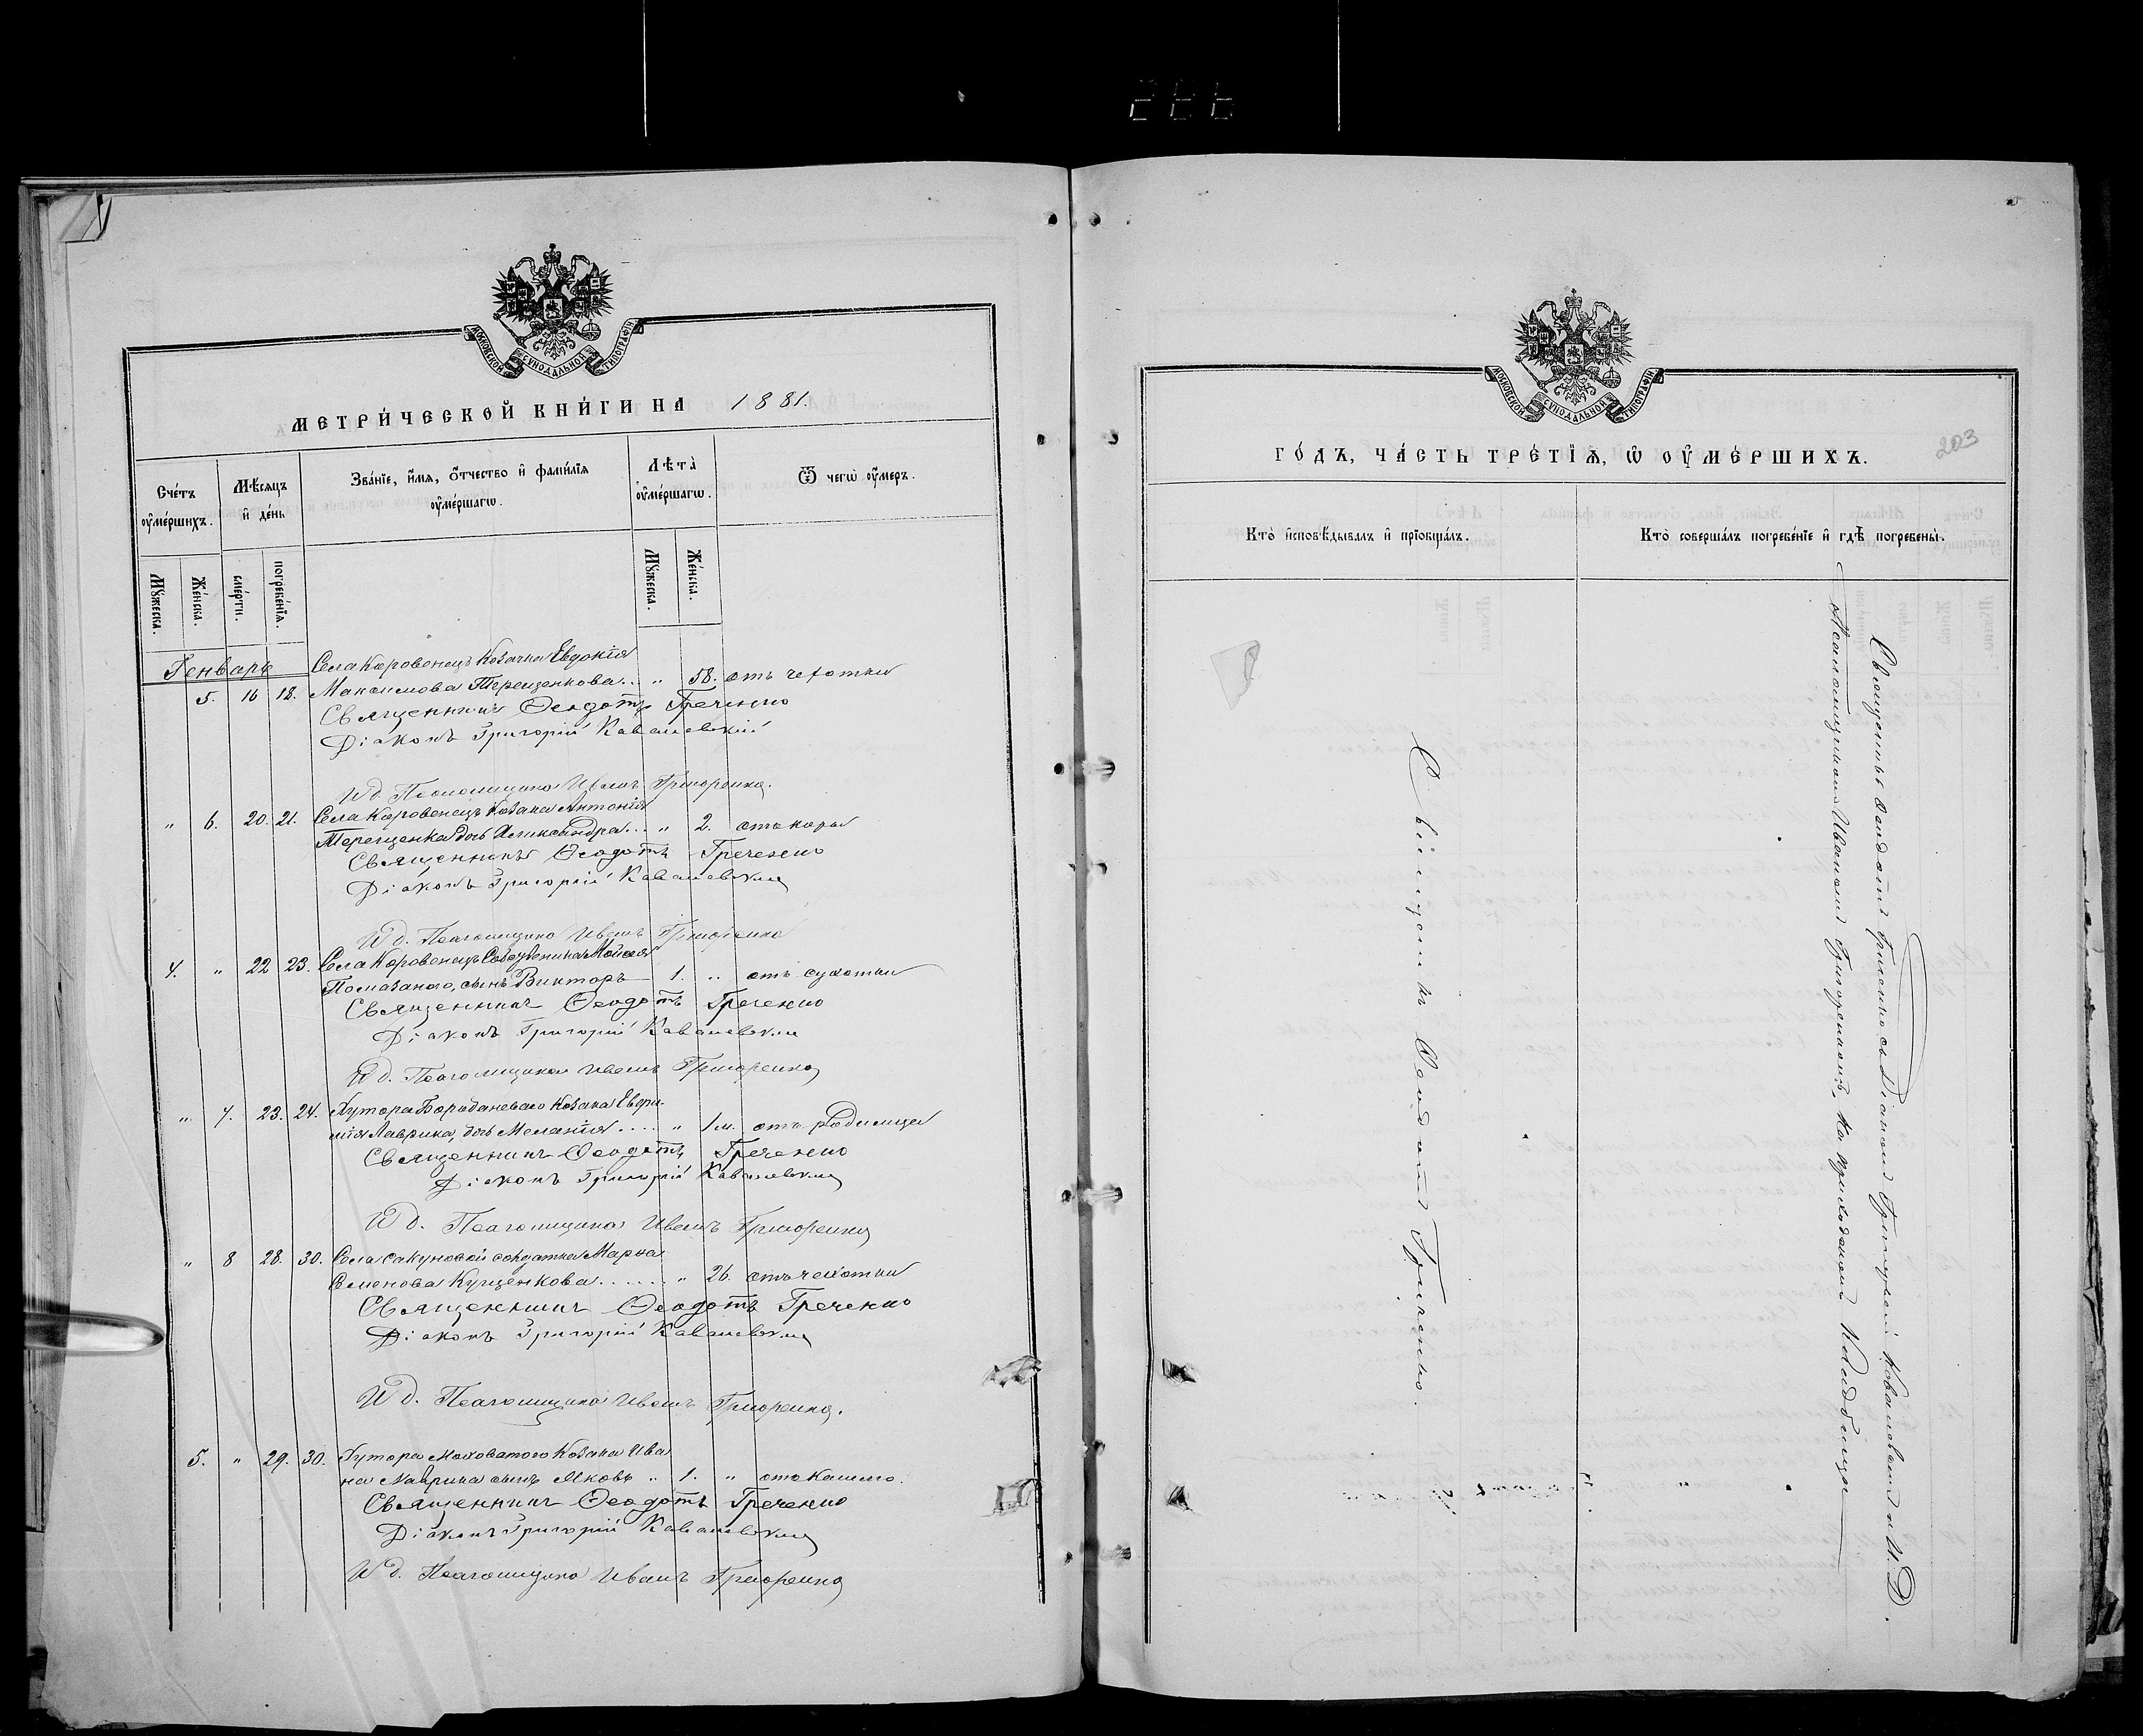 МОСКОВСКОЙ СУНОДАЛЬНОЙ ТИПОГРАФІИ
МЕТРИ́ЧЕСКОЙ КНИ́ГИ НА 1881.
Сче́тъ оу҆ме́ршихъ.
Мѣ́сяцъ и҆ де́нь
Зва́нїе, и҆́мѧ, о҆́тчество и҆ фами́лїѧ оу҆ме́ршагѡ.
Лѣта̀ оу҆ме́ршагѡ.
Ѿ чегѡ̀ оу҆́меръ.
Мꙋ́жеска.
Же́нска.
сме́рти.
погребе́нїѧ.
Мꙋ́жеска.
Же́нска.
Генварь
Села Коровенецъ Козачка Евдокія
5. 16 18. Максимова Терещенкова.. " 58. отъ чехотки
Священникъ Ѳеодотъ Греченко
Діаконъ Григорій Кавалевскій
И д. Псаломщика Иванъ Григоренко.
Села Коровенецъ Козака Антонія
" 6. 20. 21. Терещенка дочь Александра... " 2. отъ кору
Священникъ Ѳеодотъ Греченко
Діаконъ Григорій Кавалевскій
И д. Псаломщика Иванъ Григоренко
Села Коровенецъ Собственника Мойсея
4. " 22 23. Помазаного, сынъ Викторъ 1. " отъ сухотки
Священникъ Ѳеодотъ Греченко
Діаконъ Григорій Кавалевскій
И д. Псаломщика Иванъ Григоренко
Хутора Козака
" 7. 23. 24. Лаврика, дочь Меланія ..... " 1 м. отъ родимца
Священникъ Ѳеодотъ Греченко
Діаконъ Григорій Кавалевскій
И д. Псаломщика Иванъ Григоренко
Села Сакуновой солдатка Марѳа
" 8 28. 30. Семенова Куценкова....... " 26. отъ чехотки
Священникъ Ѳеодотъ Греченко
Діаконъ Григорій Кавалевскій
И д. Псаломщика Иванъ Григоренко.
Хутора Моховатого Козака Ива
5. " 29. 30. на Лаврика сынъ Яковъ " 1. " отъ кашлю.
Священникъ Ѳеодотъ Греченко
Діаконъ Григорій Кавалевскій
И д. Псаломщика Иванъ Григоренко
МОСКОВСКОЙ СУНОДАЛЬНОЙ ТИПОГРАФІИ
203
ГО́ДЪ, ЧА́СТЬ ТРЕ́ТЇѦ, Ѡ҆ ОУ҆МЕ́РШИХЪ.
Кто̀ и҆сповѣ́дывалъ и҆ прїобща́лъ.
Кто̀ соверша́лъ погребе́нїе и҆ гдѣ̀ погребены̀.
Священникъ Ѳеодотъ Греченко.
Священникъ Ѳеодотъ Греченко съ Діакономъ Григоріемъ Кавалевскимъ и И. Д.
Псаломщикомъ Иваномъ Григоренкомъ, на приходскомъ кладбищѣ